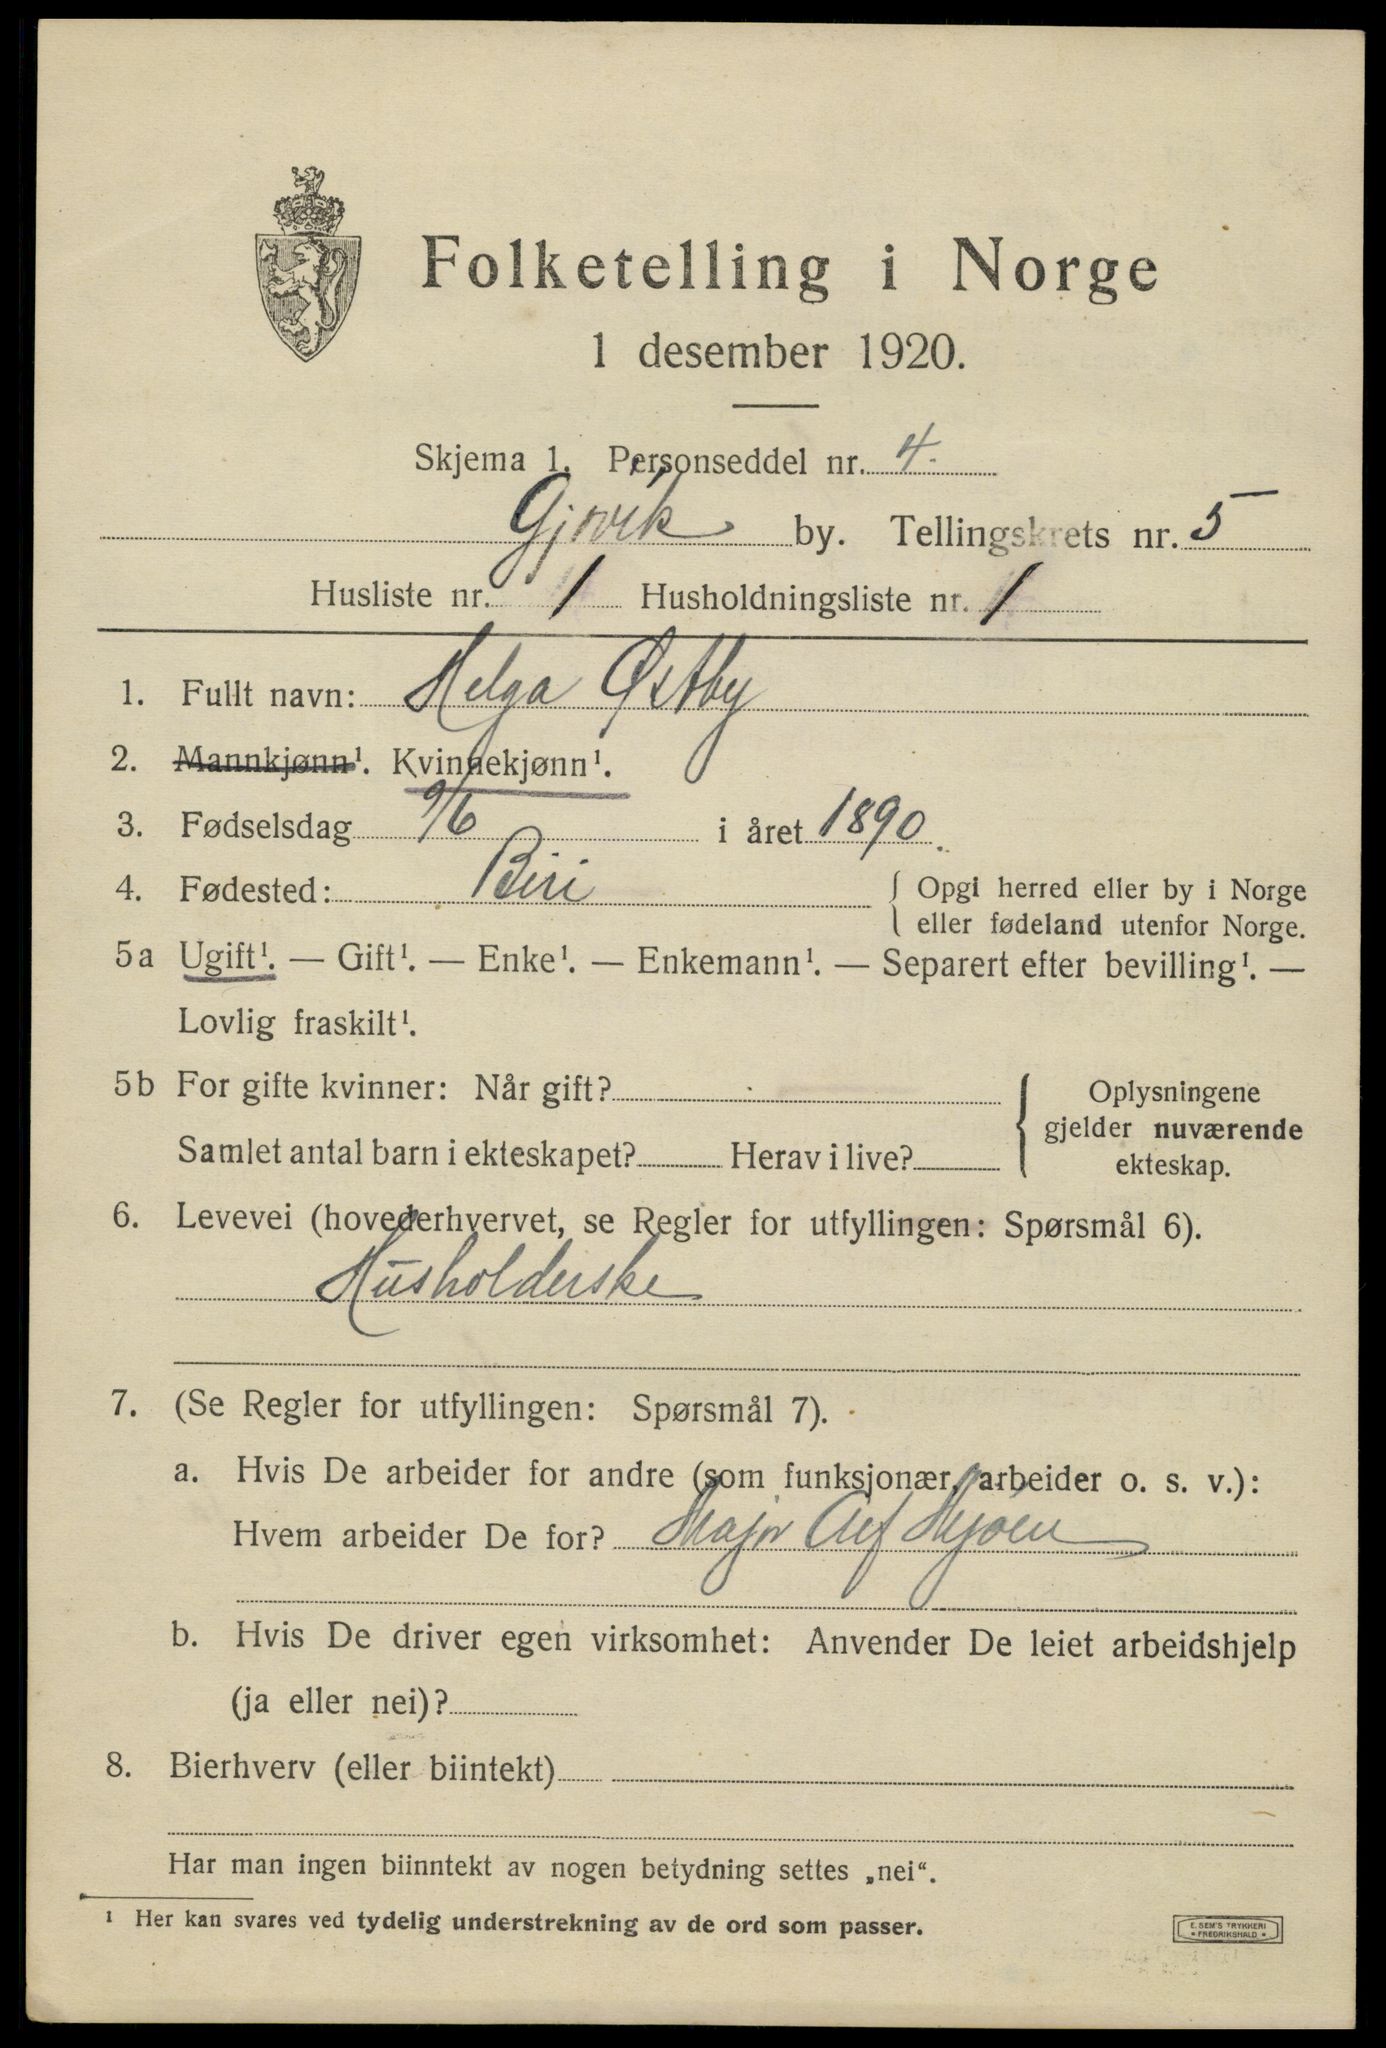 Folketelling i Norge
1 desember 1920.
Skjema 1. Personseddel nr. 4.
Gjøvik by. Tellingskrets nr. 5
Husliste nr. 1 Husholdningsliste nr. 1
1. Fullt navn: Helga Østby
2. Mannkjønn¹. Kvinnekjønn¹.
3. Fødselsdag 9/6 i året 1890.
4. Fødested: Biri { Opgi herred eller by i Norge
eller fødeland utenfor Norge.
5a Ugift¹. — Gift¹. — Enke¹. — Enkemann¹. — Separert efter bevilling¹. —
Lovlig fraskilt¹.
5b For gifte kvinner: Når gift? { Oplysningene
gjelder nuværende
Samlet antal barn i ekteskapet? Herav i live? ekteskap.
6. Levevei (hovederhvervet, se Regler for utfyllingen: Spørsmål 6).
Husholderske
7. (Se Regler for utfyllingen: Spørsmål 7).
a. Hvis De arbeider for andre (som funksjonær, arbeider o. s. v.):
Hvem arbeider De for? Major Alf Mjøen
b. Hvis De driver egen virksomhet: Anvender De leiet arbeidshjelp
(ja eller nei)?
8. Bierhverv (eller biintekt)
Har man ingen biinntekt av nogen betydning settes „nei“.
¹ Her kan svares ved tydelig understrekning av de ord som passer.
E. SEM'S TRYKKERI
• FREDRIKSHALD •